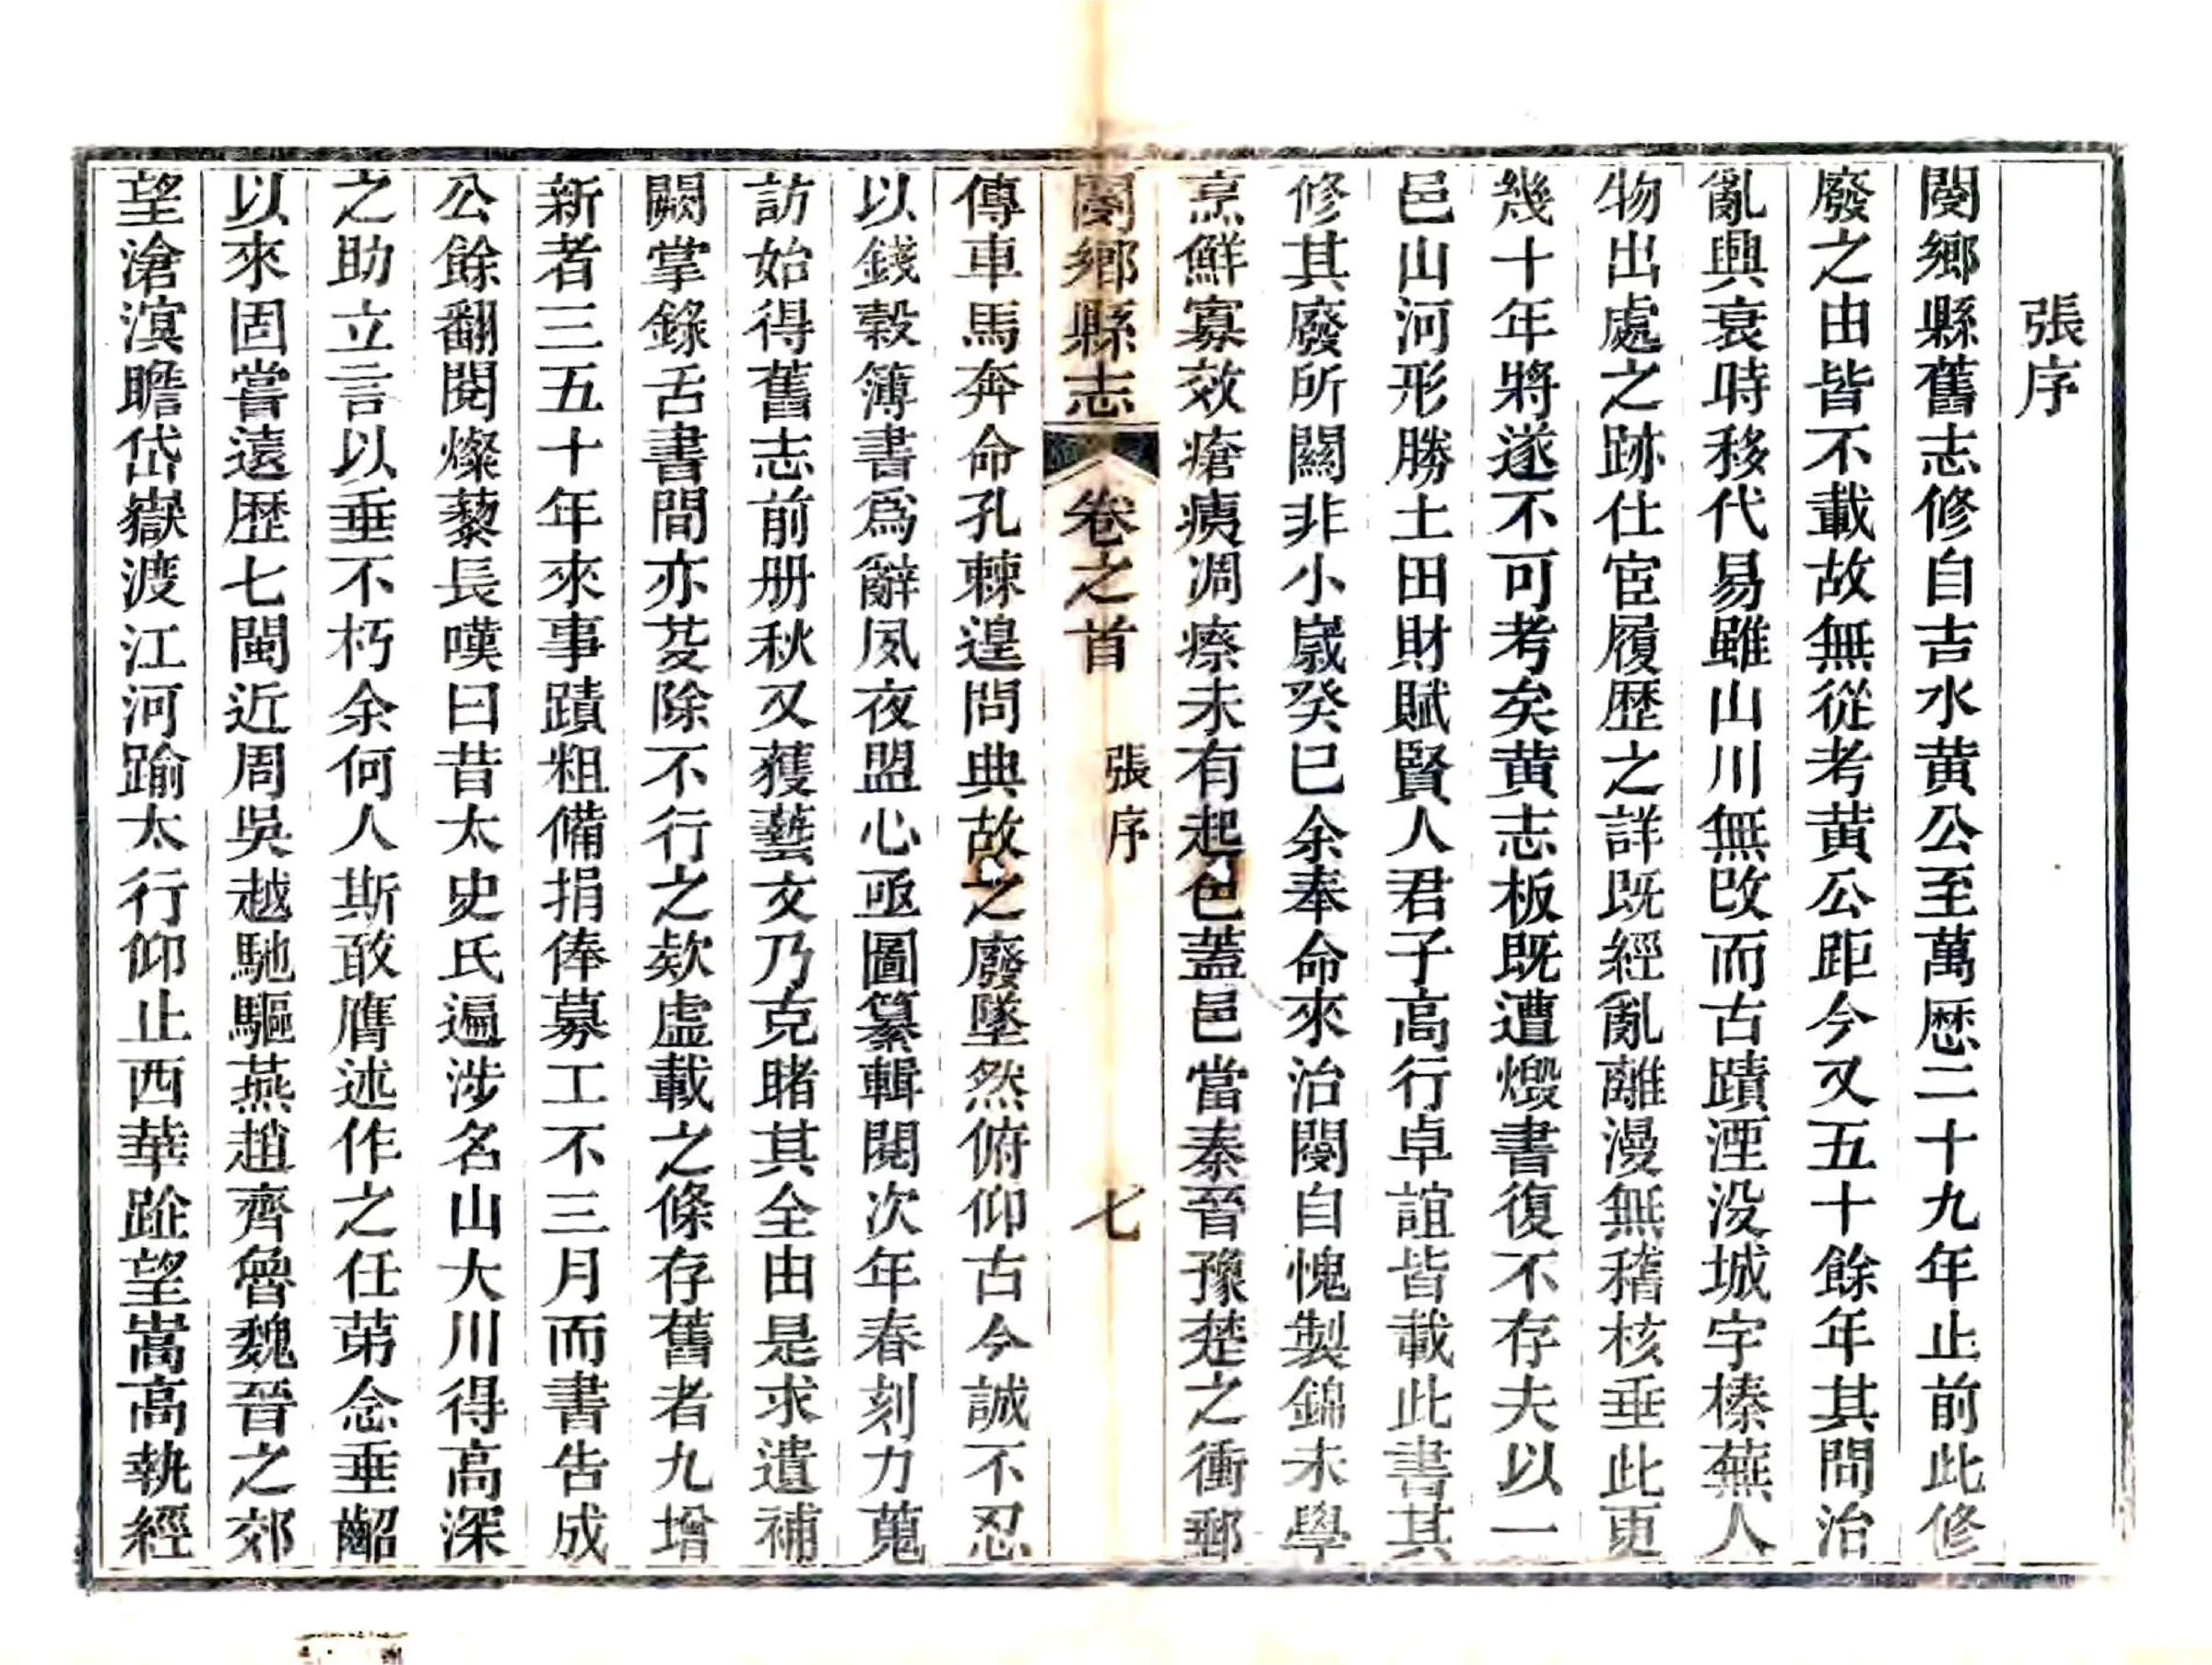 張序
閿鄉縣舊志修自吉水黄公至萬厯二十九年止前此修
廢之由皆不載故無從考黄公距今又五十餘年其間治
亂興衰時移代易雖山川無改而古蹟湮没城宇榛蕪人
物出處之跡仕宦履歴之詳既經亂離漫無稽核垂此更
幾十年將遂不可考矣黄志板既遭燬書復不存夫以一
邑山河形勝土田財賦賢人君子高行卓誼皆載此書其
修其廢所關非小嵗癸巳余奉命來治閿自愧製錦未學
烹鮮寡效瘡痍凋瘵未有起色蓋邑當秦晉豫楚之衝郵
閿鄉縣志 卷之首 張序 七
傳車馬奔命孔棘遑問典故之廢墜然俯仰古今誠不忍
以錢穀簿書爲辭夙夜盟心亟圖纂輯閱次年春刻力蒐
訪始得舊志前册秋又獲藝文乃克睹其全由是求遺補
闕掌錄舌書間亦芟除不行之欵虛載之條存舊者九增
新者三五十年來事蹟粗備捐俸募工不三月而書告成
公餘翻閱燦藜長嘆曰昔太史氏遍涉名山大川得高深
之助立言以垂不朽余何人斯敢膺述作之任苐念垂齠
以來固嘗遠歴七閩近周吳越馳驅燕趙齊魯魏晉之郊
望滄溟瞻岱嶽渡江河踰太行仰止西華趾望嵩高執經